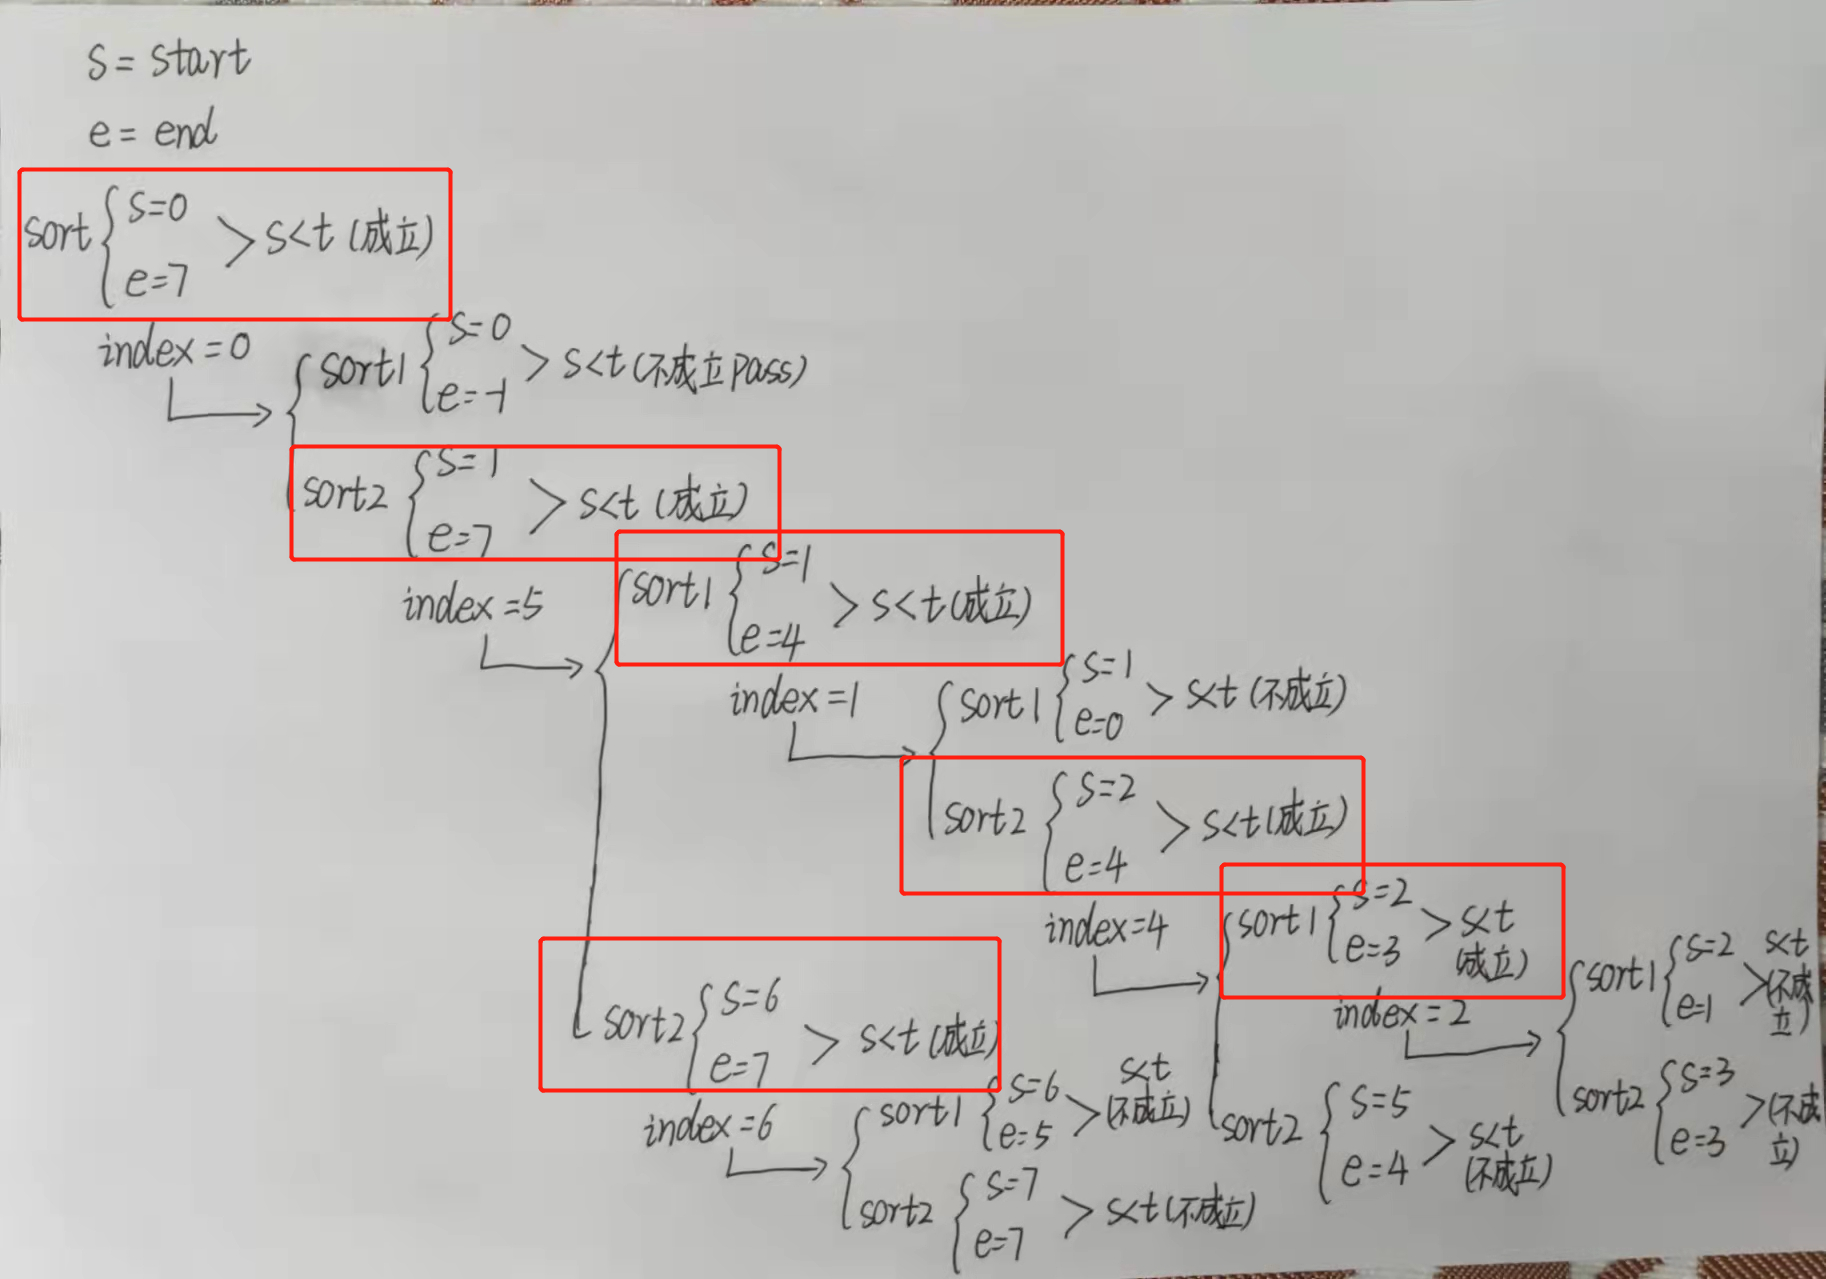 s = start
e = end
sort { s=0 e=7 > s<t (成立)
index=0
sort1 { s=0 e=-1 > s<t (不成立pass)
sort2 { s=1 e=7 > s<t (成立)
index=5
sort1 { s=1 e=4 > s<t (成立)
index=1
sort1 { s=1 e=0 > s<t (不成立)
sort2 { s=2 e=4 > s<t (成立)
index=4
sort1 { s=2 e=3 > s<t (成立)
index=2
sort1 { s=2 e=1 > s<t (不成立)
sort2 { s=3 e=3 > (不成立)
sort2 { s=5 e=4 > s<t (不成立)
sort2 { s=6 e=7 > s<t (成立)
index=6
sort1 { s=6 e=5 > s<t (不成立)
sort2 { s=7 e=7 > s<t (不成立)